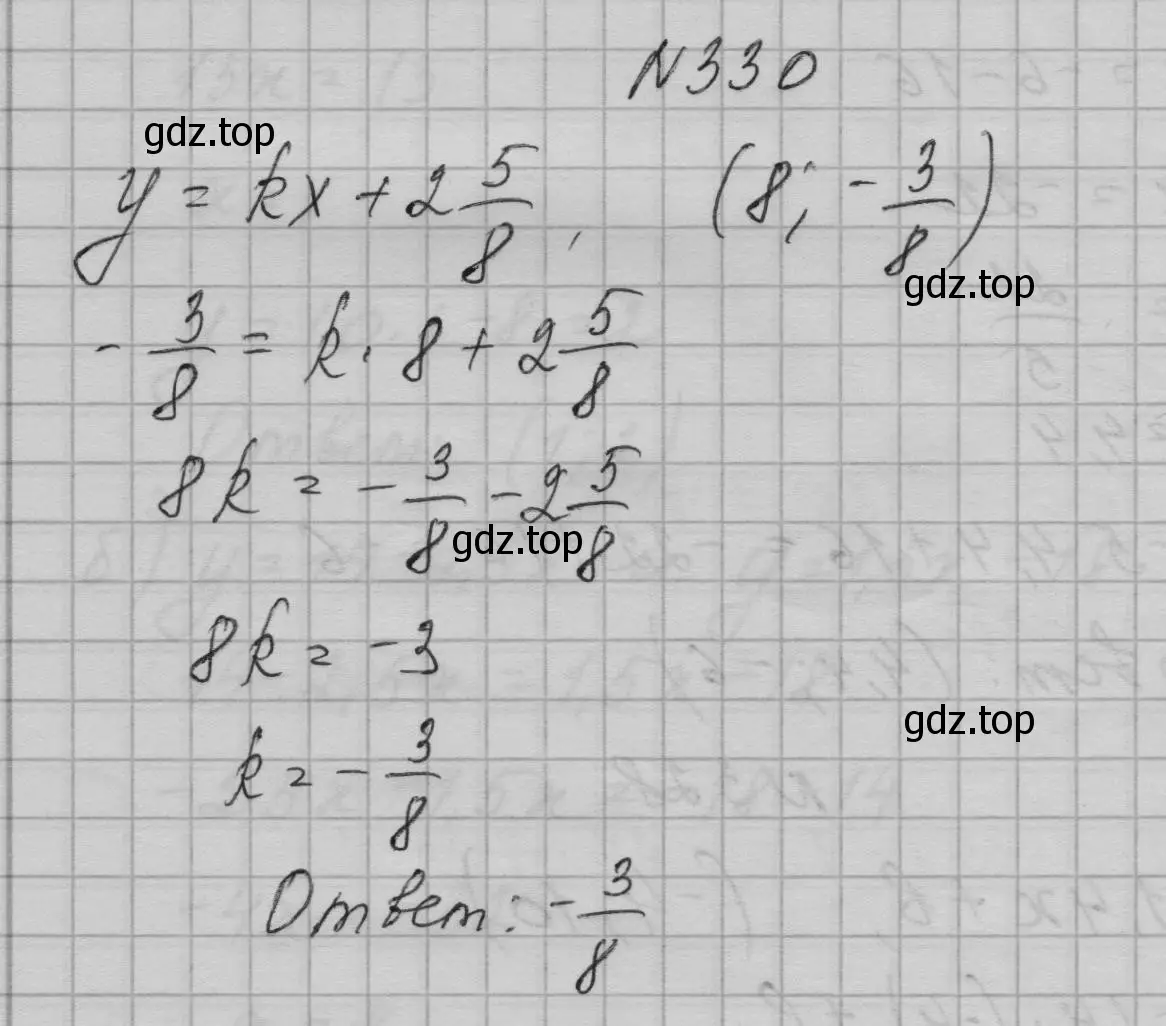 N330
gdz.top
y = kx + 2 5/8, (8; -3/8)
gdz.top
-3/8 = k · 8 + 2 5/8
8k = -3/8 - 2 5/8
gdz.top
8k = -3
gdz.top
k = -3/8
Ответ: -3/8